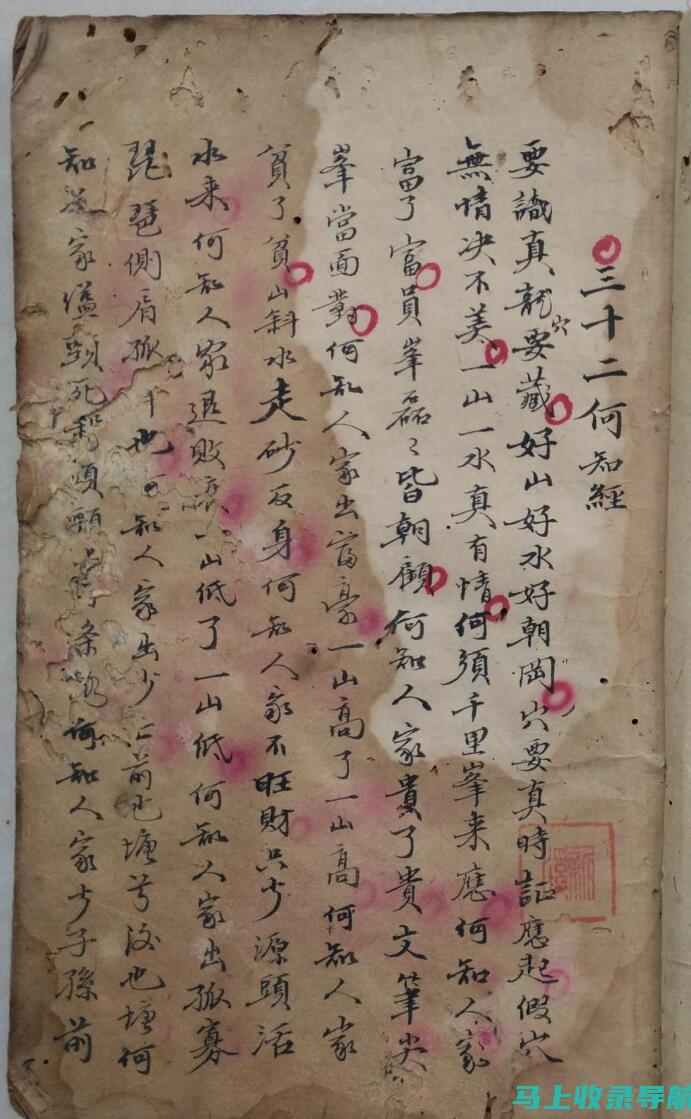 三十二何知經
要識真龍要藏穴好山好水好朝岡穴要真時証應起假穴
無情决不美一山一水真有情何須千里峯来應何知人家
富了富員峯磊〻皆朝顧何知人家貴了貴文筆尖
峯當面對何知人家出富豪一山高了一山高何知人家
貧了貧山斜水走砂反身何知人家不旺財只少源頭活
水来何知人家退敗一山低了一山低何知人家出孤寡
琵琶側肩孤也知人家出少亡前也塘兮後也塘何
知家縊死頸條何知人家少子孫前
马上收录导航